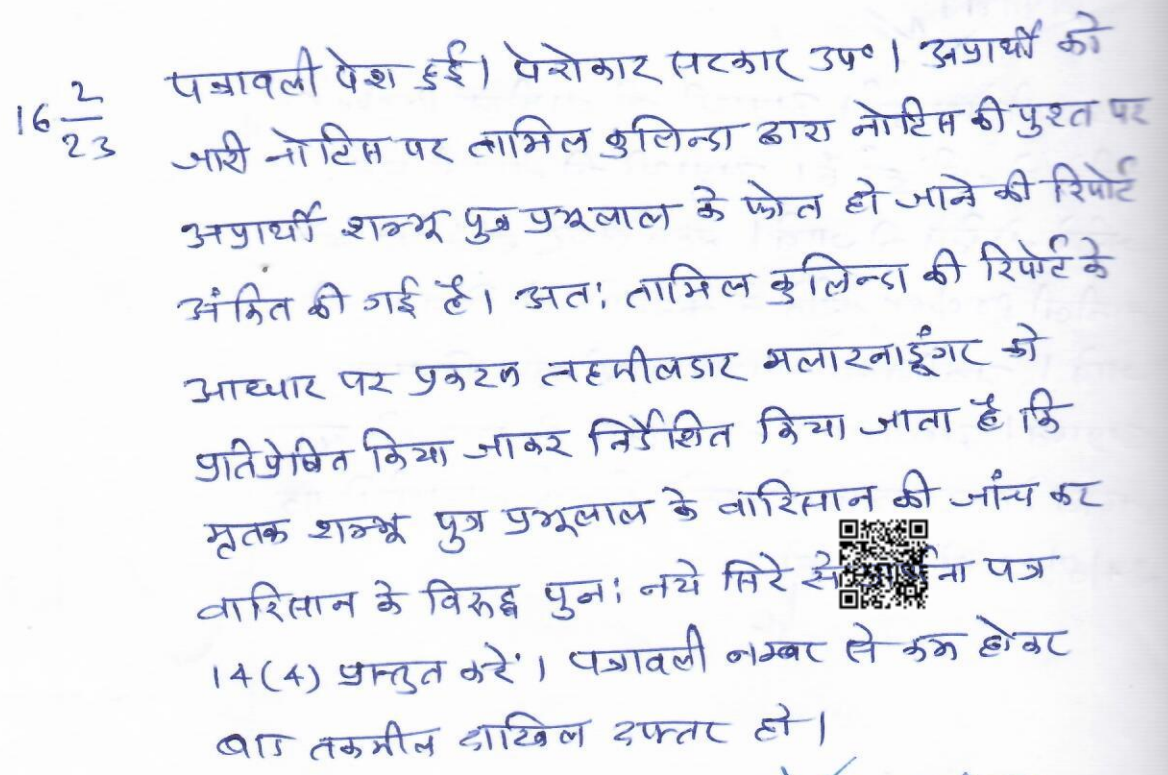 16 2/23 पत्रावली पेश हुई। पेरोकार सरकार उप०। अप्रार्थी को
जारी नोटिस पर तामिल कुलिन्दा द्वारा नोटिस की पुश्त पर
अप्रार्थी शम्भू पुत्र प्रभूलाल के फोत हो जाने की रिपोर्ट
अंकित की गई है। अत: तामिल कुलिन्दा की रिपोर्ट के
आधार पर प्रकरण तहसीलदार मलारनाडूंगर को
प्रतिप्रेषित किया जाकर निर्देशित किया जाता है कि
मृतक शम्भू पुत्र प्रभूलाल के वारिसान की जांच कर
वारिसान के विरूद्ध पुन: नये सिरे से प्रार्थना पत्र
14(4) प्रस्तुत करें। पत्रावली नम्बर से कम होकर
बाद तकमील दाखिल दफ्तर हो।